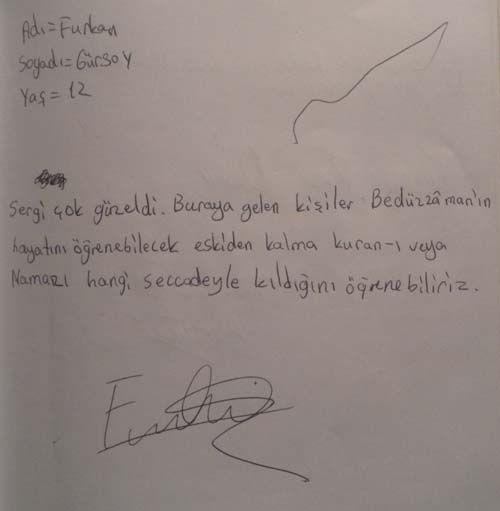 Adı = Furkan
Soyadı = Gürsoy
Yaş = 12
Sergi çok güzeldi. Buraya gelen kişiler Bedüzzâman'ın
hayatını öğrenebilecek eskiden kalma kuran-ı veya
Namazı hangi seccadeyle kıldığını öğrenebiliriz.